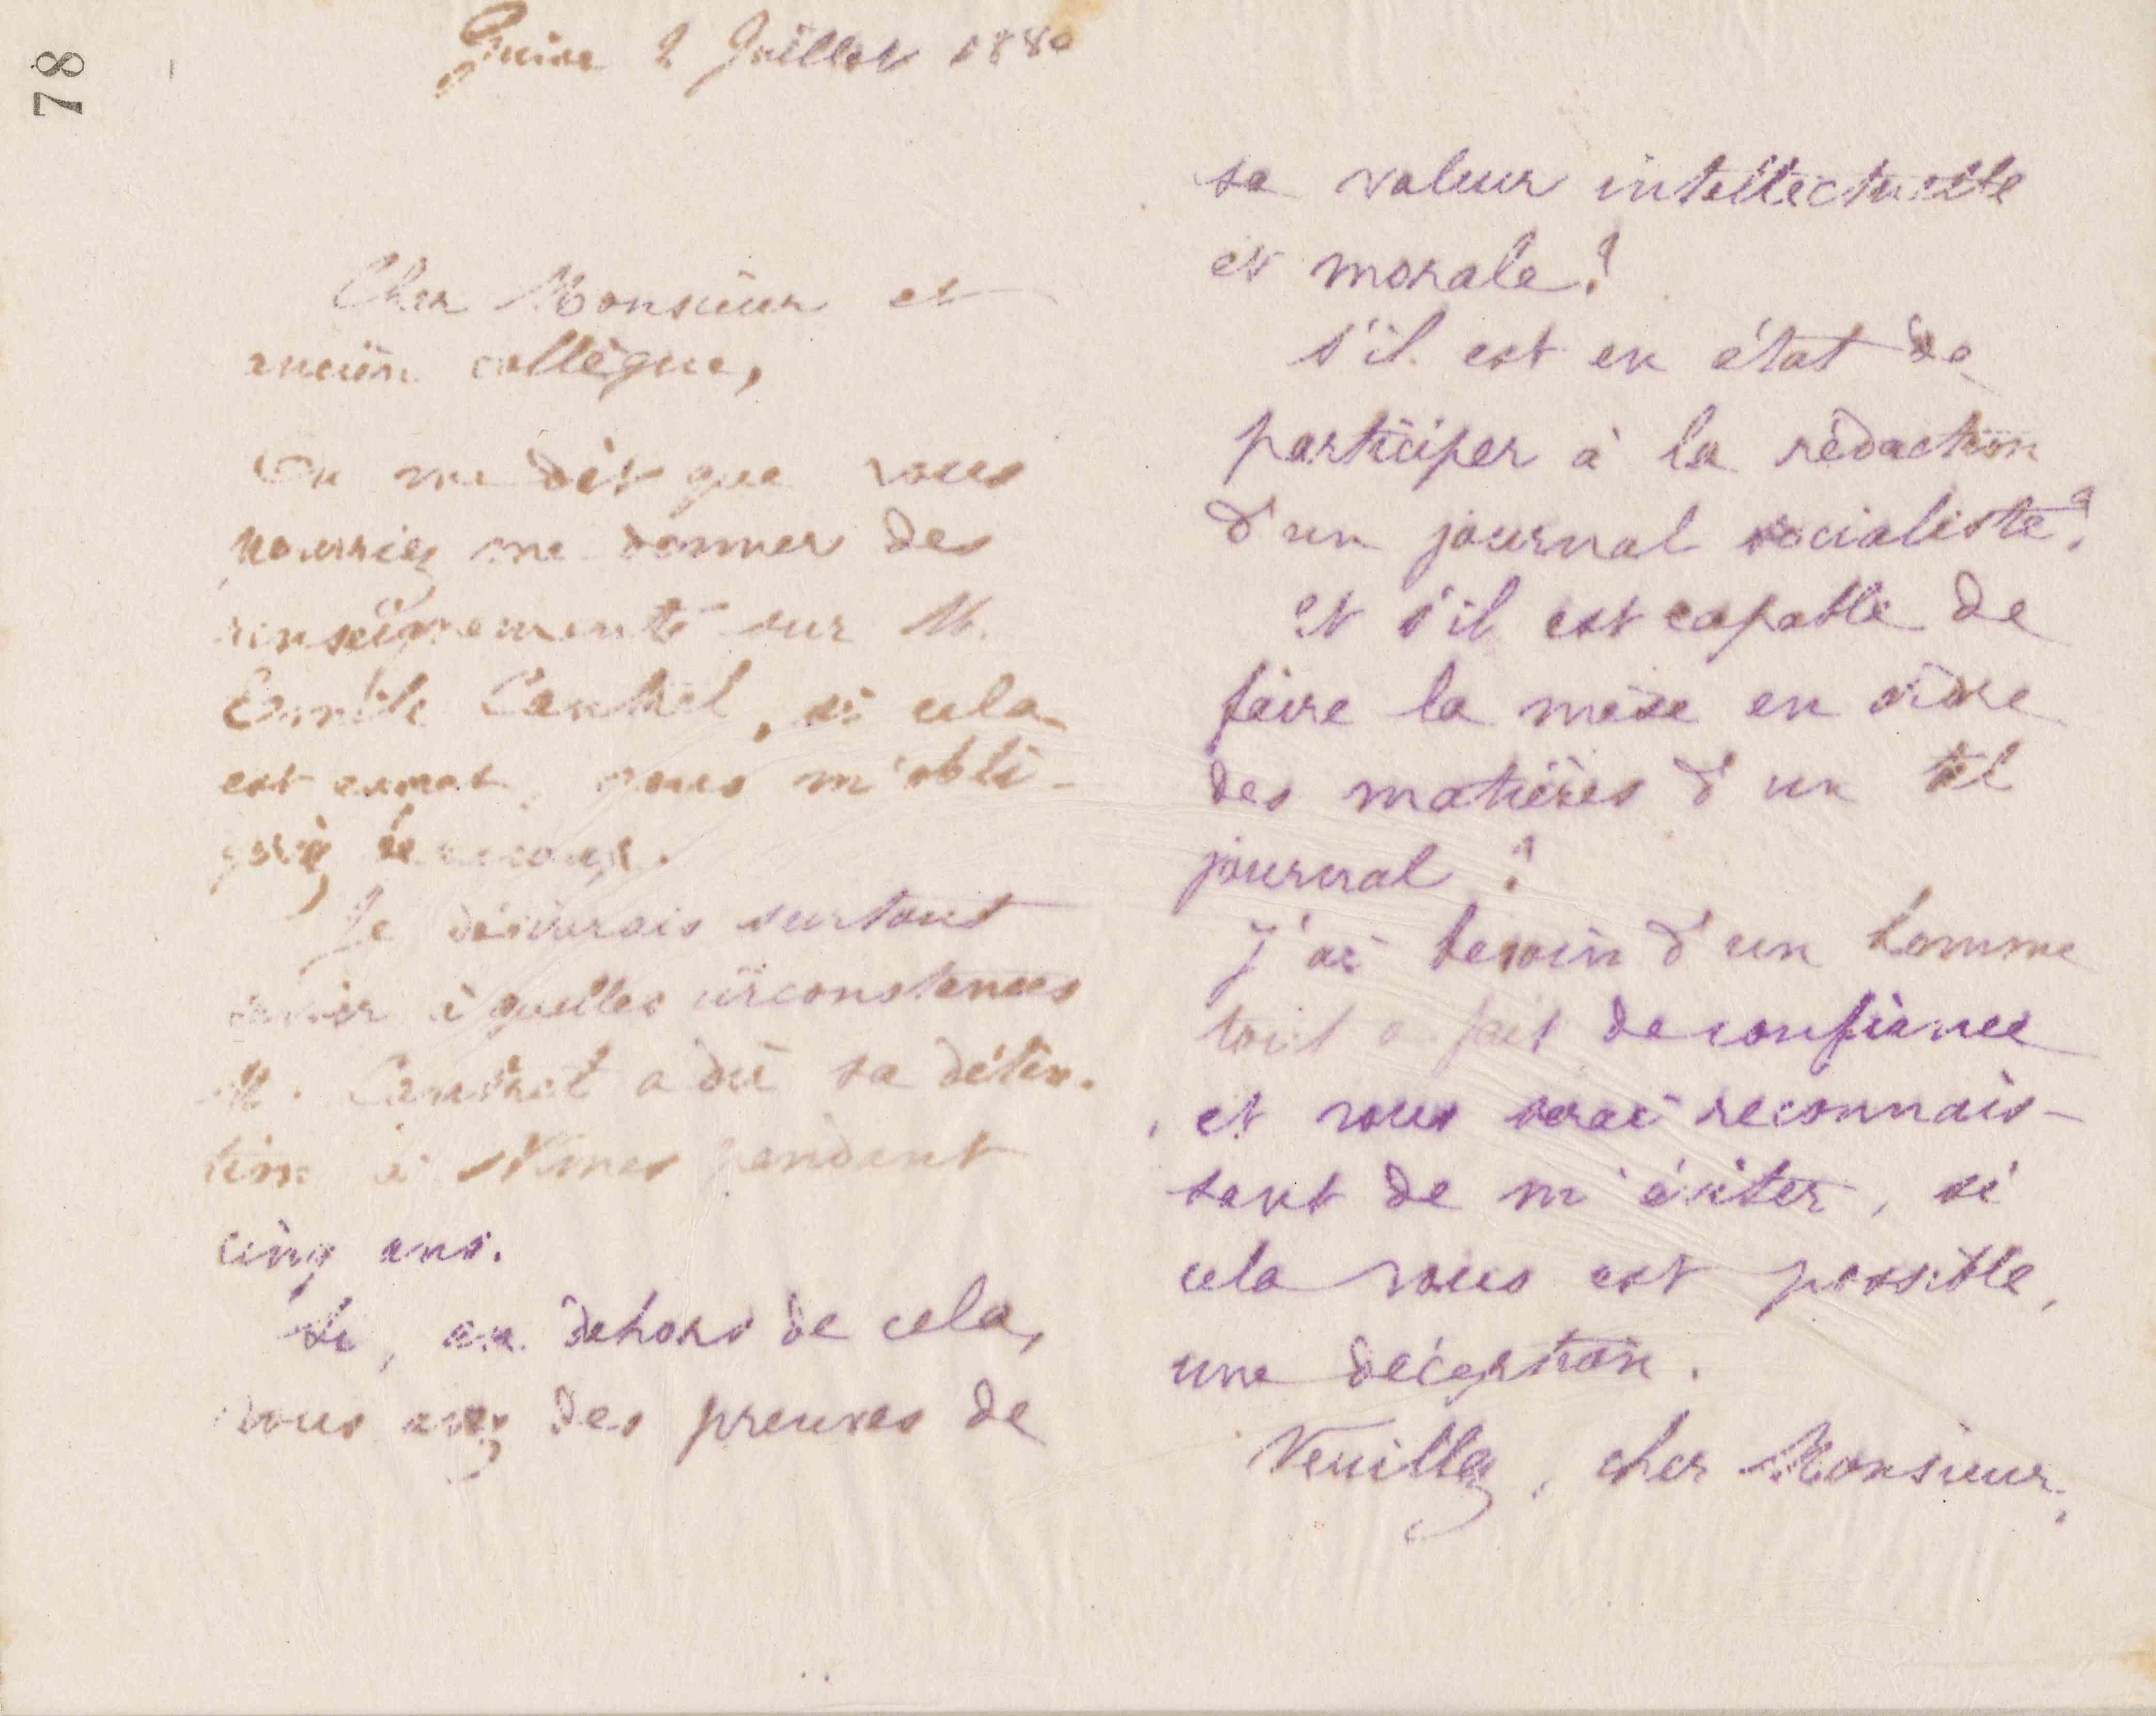 78
Guise 2 Juillet 1880
Cher Monsieur et
ancien collègue,
On me dit que vous
pourriez me donner des
renseignements sur M.
Camhel, si cela
est exact, vous m'obli-
gerez beaucoup.
Je désirerais surtout
savoir à quelles circonstances
M. a dû sa déten-
tion à Nîmes pendant
cinq ans.
Si, en dehors de cela,
vous avez des preuves de
sa valeur intellectuelle
et morale?
s'il est en état de
participer à la rédaction
d'un journal socialiste?
et s'il est capable de
faire la mise en ordre
des matières d'un tel
journal?
J'ai besoin d'un homme
tout à fait de confiance
et vous serai reconnais-
sant de m'éviter, si
cela vous est possible,
une déception.
Veuillez, cher Monsieur,